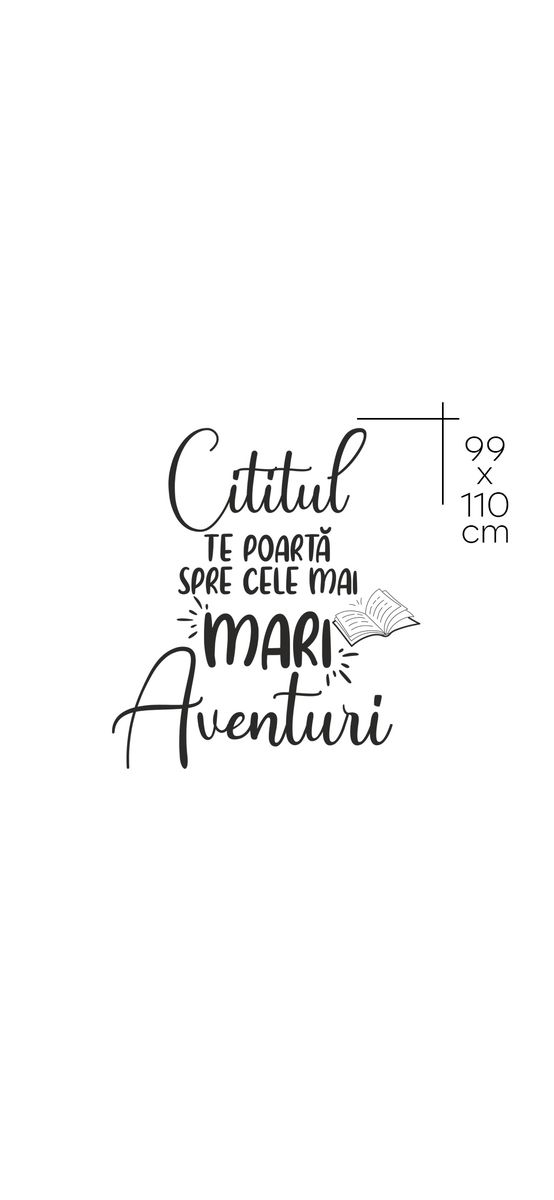 Cititul
TE POARTĂ
SPRE CELE MAI
MARI
Aventuri
99
x
110
cm